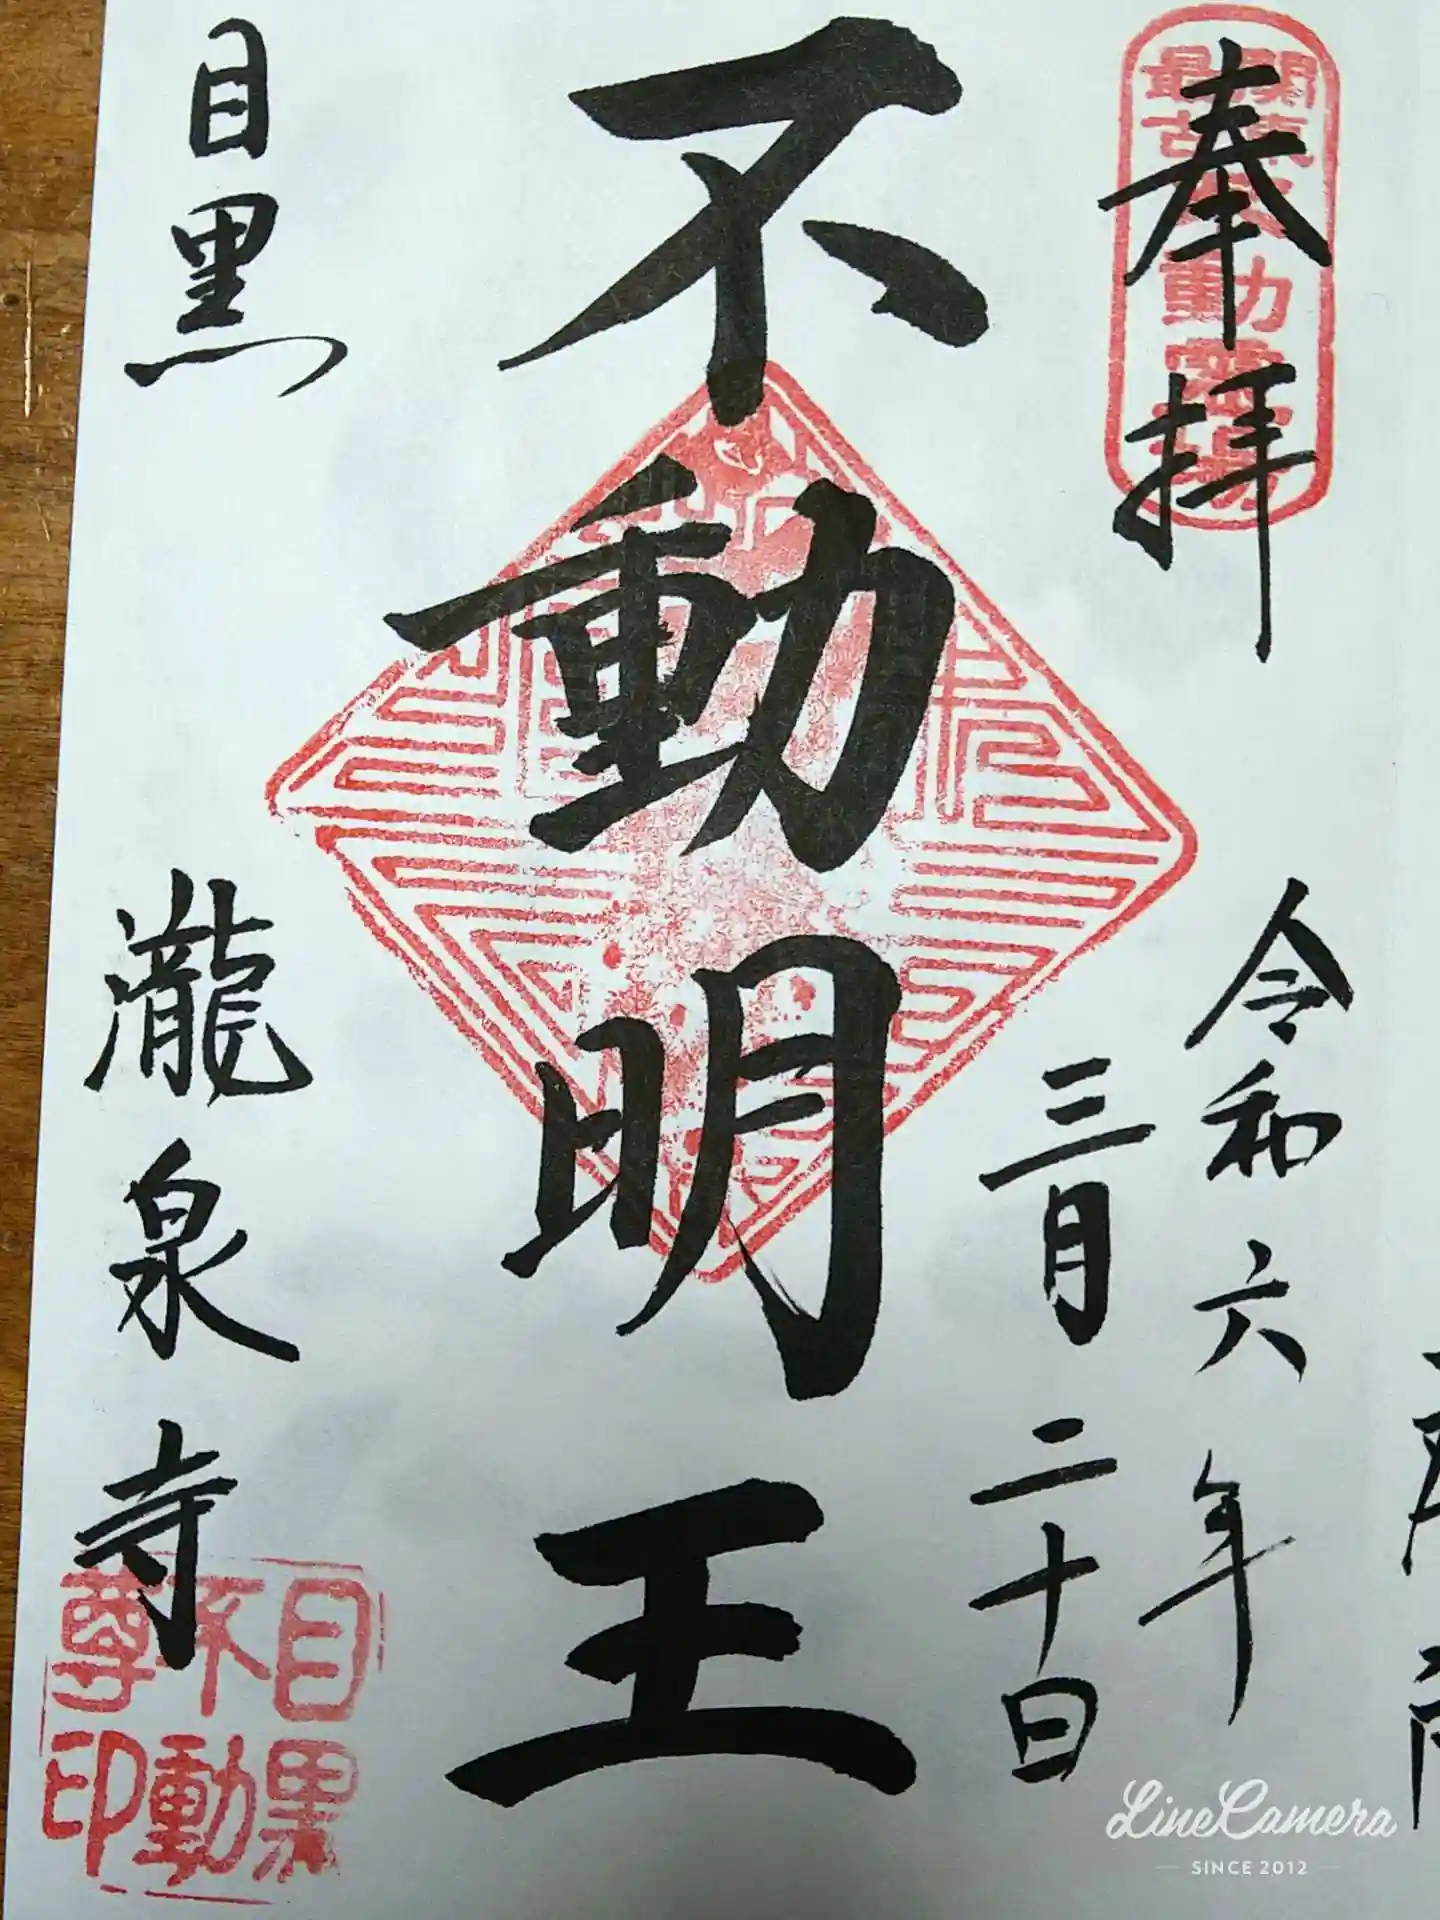 奉拝
関東最古不動霊場
令和六年
三月二十日
不動明王
目黒
瀧泉寺
目黒
不動
尊印
LineCamera
SINCE 2012